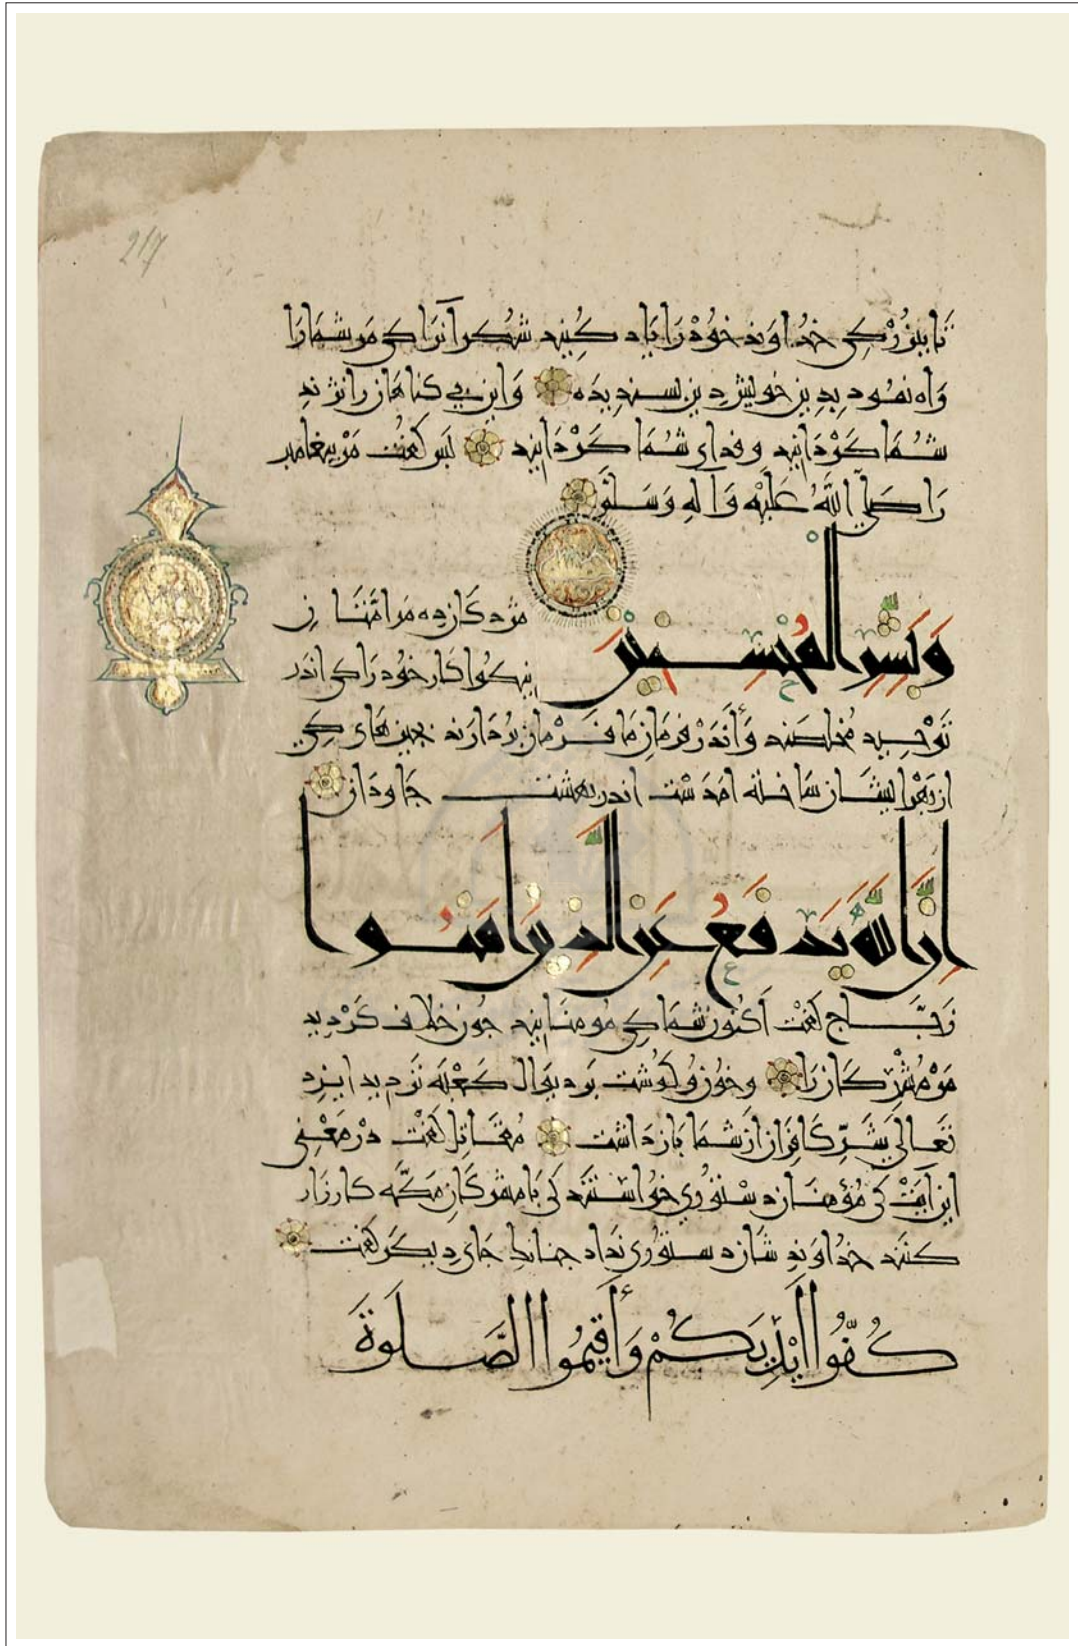 217
تا ببزرگی خداوند خود را یاد کنید شکر آنرا کی مر شما را
راه نمود بدین خویش دین پسندیده واین بی کناهان را نژند
شما کردانید و فدای شما کردانید پس کفت مر پیغامبر
را صلی الله علیه وآله وسلم
وَبَشِّرِ الْمُحْسِنِينَ
مژدکان ده مر امتتان
نیکوا کار خود را کی اندر
توحید مخلصند وأندر فرمان ما فرمان بردارند بجیزهای کی
از بهر ایشان ساخته امدست اندر بهشت جاودان
إِنَّ اللَّهَ يَدْفَعُ عَنِ الَّذِينَ آمَنُوا
زجاج کفت اکنون شما کی مومنانید جون خطف کردید
مر مشرکان را وخون و کوشت بر دیوال کعبه نزدید ایزد
تعالی بشر کافران از شما باز داشت مقاتل کفت در معنی
این آیت کی مؤمنان دستوری خواستند کی با مشرکان مکه کارزار
کنند خداوند شان دستوری نداد جنانک جای دیکر کفت
كُفُّوا أَيْدِيَكُمْ وَأَقِيمُوا الصَّلوةَ